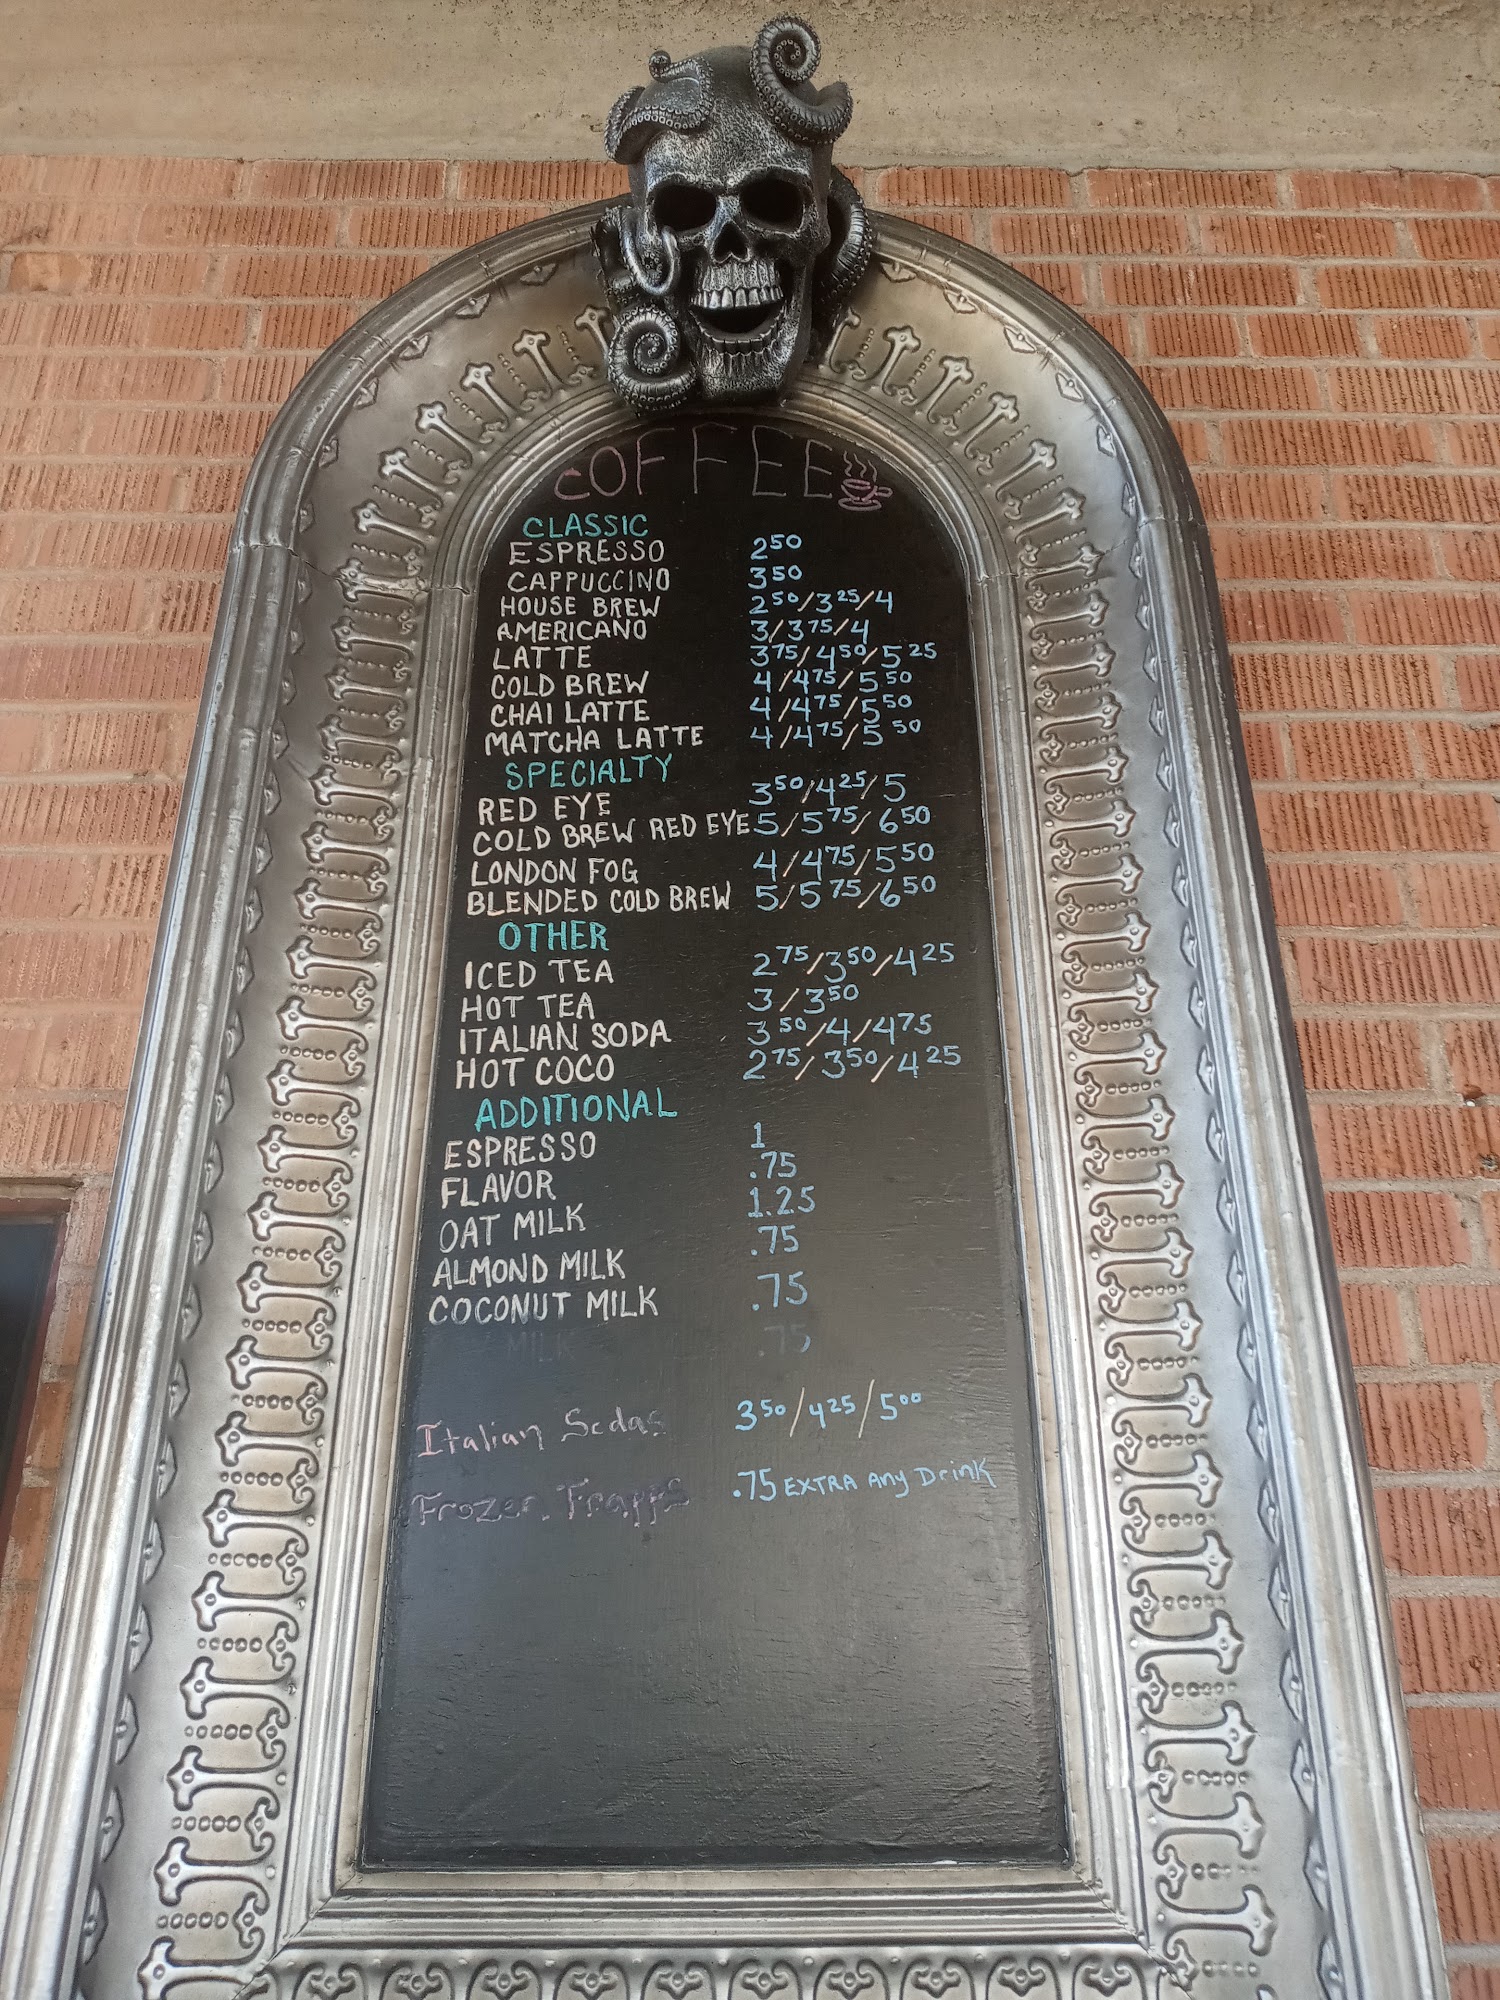 COFFEE
CLASSIC
ESPRESSO 2⁵⁰
CAPPUCCINO 3⁵⁰
HOUSE BREW 2⁵⁰/3²⁵/4
AMERICANO 3/3⁷⁵/4
LATTE 3⁷⁵/4⁵⁰/5²⁵
COLD BREW 4/4⁷⁵/5⁵⁰
CHAI LATTE 4/4⁷⁵/5⁵⁰
MATCHA LATTE 4/4⁷⁵/5⁵⁰
SPECIALTY
RED EYE 3⁵⁰/4²⁵/5
COLD BREW RED EYE 5/5⁷⁵/6⁵⁰
LONDON FOG 4/4⁷⁵/5⁵⁰
BLENDED COLD BREW 5/5⁷⁵/6⁵⁰
OTHER
ICED TEA 2⁷⁵/3⁵⁰/4²⁵
HOT TEA 3/3⁵⁰
ITALIAN SODA 3⁵⁰/4/4⁷⁵
HOT COCO 2⁷⁵/3⁵⁰/4²⁵
ADDITIONAL
ESPRESSO 1
FLAVOR .75
OAT MILK 1.25
ALMOND MILK .75
COCONUT MILK .75
MILK .75
Italian Sodas 3⁵⁰/4²⁵/5⁰⁰
Frozen Frapps .75 EXTRA Any Drink